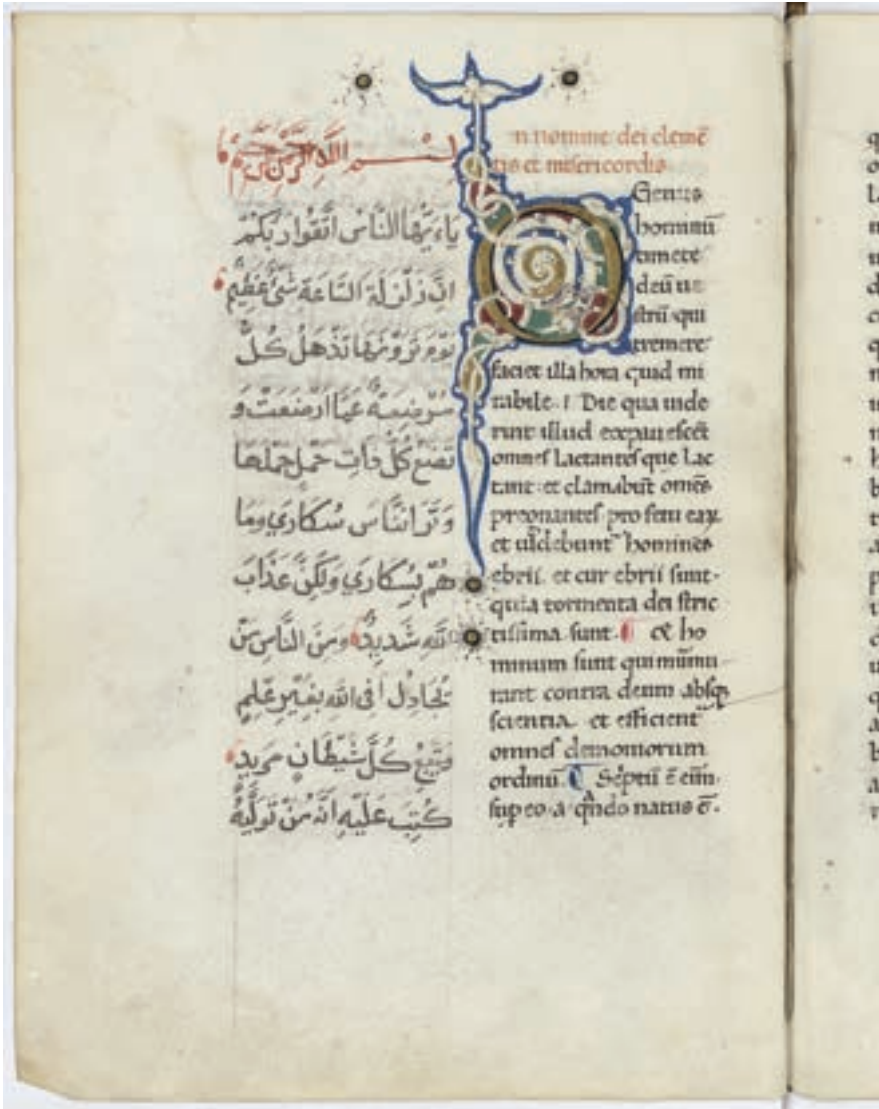 بِسْمِ اللَّهِ الرَّحْمَنِ الرَّحِيمِ
يَاءَيُّهَا النَّاسُ اتَّقُوا رَبَّكُمْ
انَّ زَلْزَلَةَ السَّاعَةِ شَىْءٌ عَظِيمٌ
يَوْمَ تَرَوْنَهَا تَذْهَلُ كُلُّ
مُرْضِعَةٍ عَمَّا ارْضَعَتْ وَ
تَضَعُ كُلُّ ذَاتِ حَمْلٍ حَمْلَهَا
وَتَرَا النَّاسَ سُكَارَي وَمَا
هُمْ بِسُكَارَي وَلَكِنَّ عَذَابَ
اللَّهِ شَدِيدٌ وَمِنَ النَّاسِ مَنْ
يُجَادِلُ فِى اللَّهِ بِغَيْرِ عِلْمٍ
وَيَتَّبِعُ كُلَّ شَيْطَانٍ مَرِيدٍ
كُتِبَ عَلَيْهِ انَّهُ مَنْ تَوَلَّيهُ
n nomine dei clemē
tis et misericordis
O Genus
hominū
timete
deū ue
strū qui
tremere
faciet illa hora quid mi
rabile. Die qua uide
rint illud expauescēt
omnes Lactantes que Lac
tant. et clamabūt om̄es
pregnantes pro fetu eaꝝ.
et uidebunt homines
ebrii. et cur ebrii sunt.
quia tormenta dei stric
tissima sunt. et ho
minum sunt qui
rant contra deum absqꝫ
scientia. et efficient
omnes demoniorum
ordinū. Sc̄ptū ē eim̄.
suꝑ eo. a qn̄do natus ē.